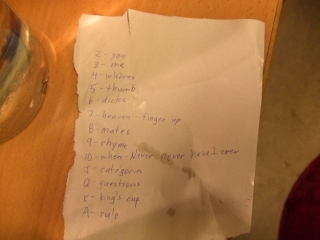 2 - you
3 - me
4 - whores
5 - thumb
6 - dicks
7 - heaven - finger up
8 - mates
9 - rhyme
10 - when - Never never have I ever
J - categories
Q - questions
K - king's cup
A - rule